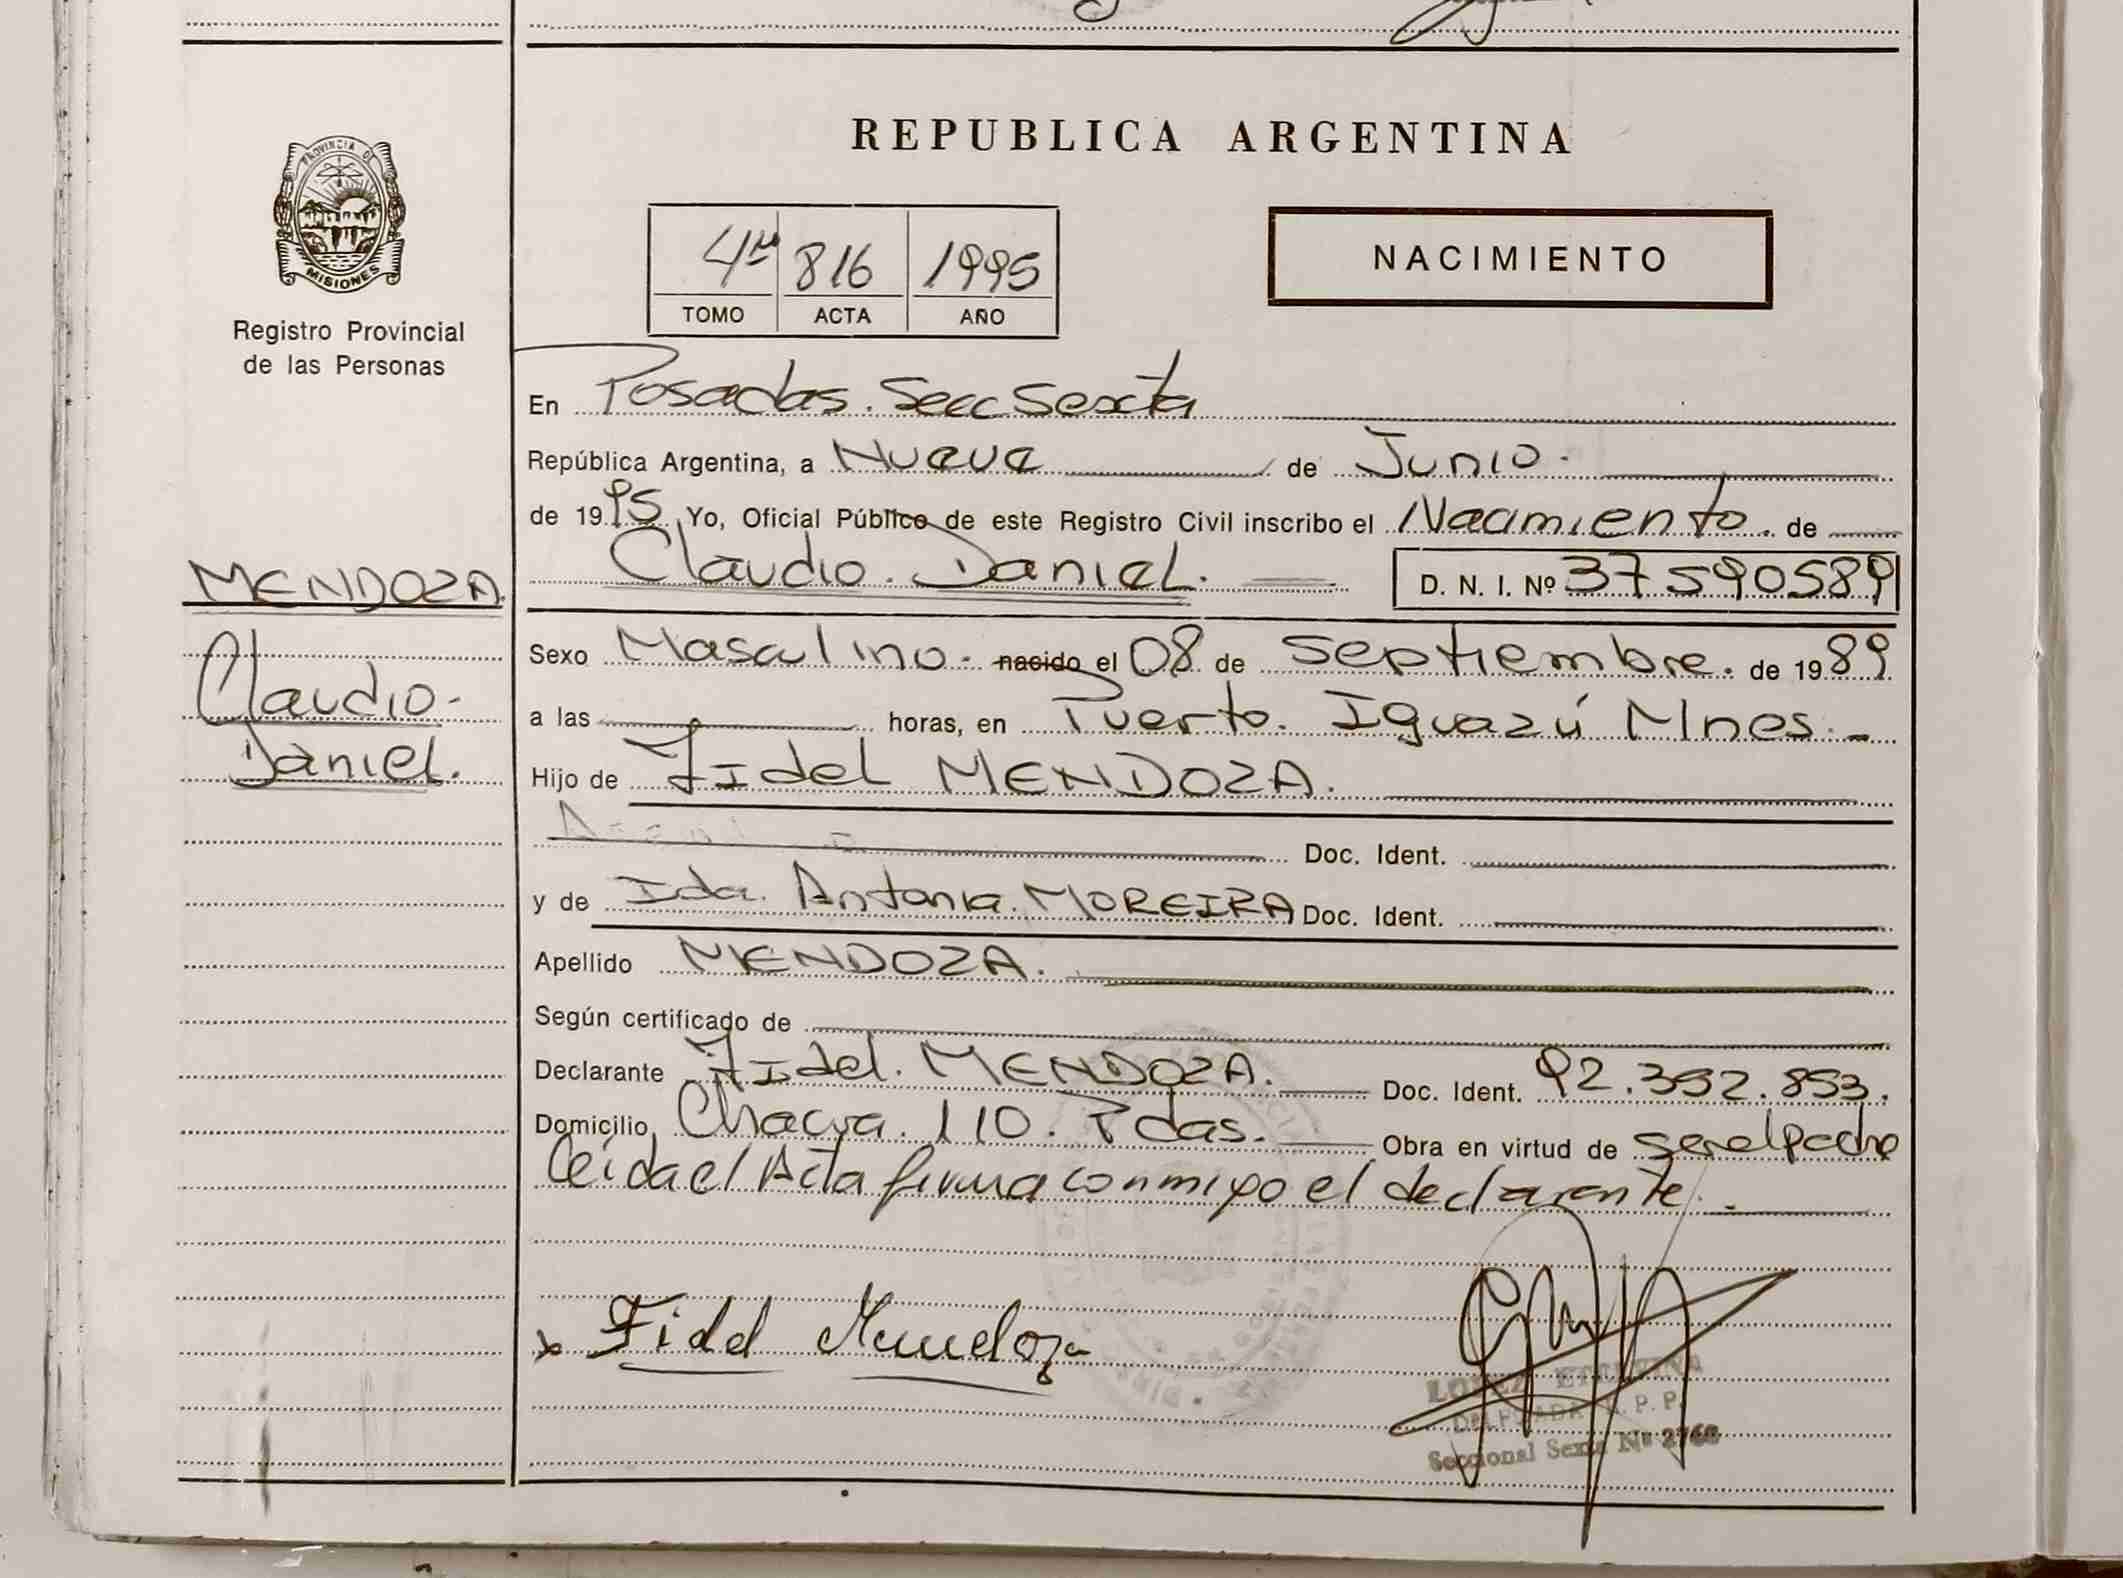 REPUBLICA ARGENTINA
PROVINCIA DE
MISIONES
Registro Provincial
de las Personas
816 1995
TOMO ACTA AÑO
NACIMIENTO
En Posadas. Secc Sexta
República Argentina, a Nueve de Junio.
de 1995 Yo, Oficial Público de este Registro Civil inscribo el Nacimiento. de
Claudio. Daniel. D. N. I. Nº 37590589
MENDOZA.
Claudio.
Daniel.
Sexo Masculino. nacido el 08 de Septiembre. de 1989
a las horas, en Puerto. Iguazú Mnes.
Hijo de Fidel MENDOZA.
Doc. Ident.
y de Ida. Antonia. MOREIRA Doc. Ident.
Apellido MENDOZA.
Según certificado de
Declarante Fidel. MENDOZA. Doc. Ident. 92.352.853.
Domicilio Chacra. 110. Pdas. Obra en virtud de ser el padre
Leída el Acta firma conmigo el declarante.
x Fidel Mendoza
LOPEZ
Seccional Sexta Nº